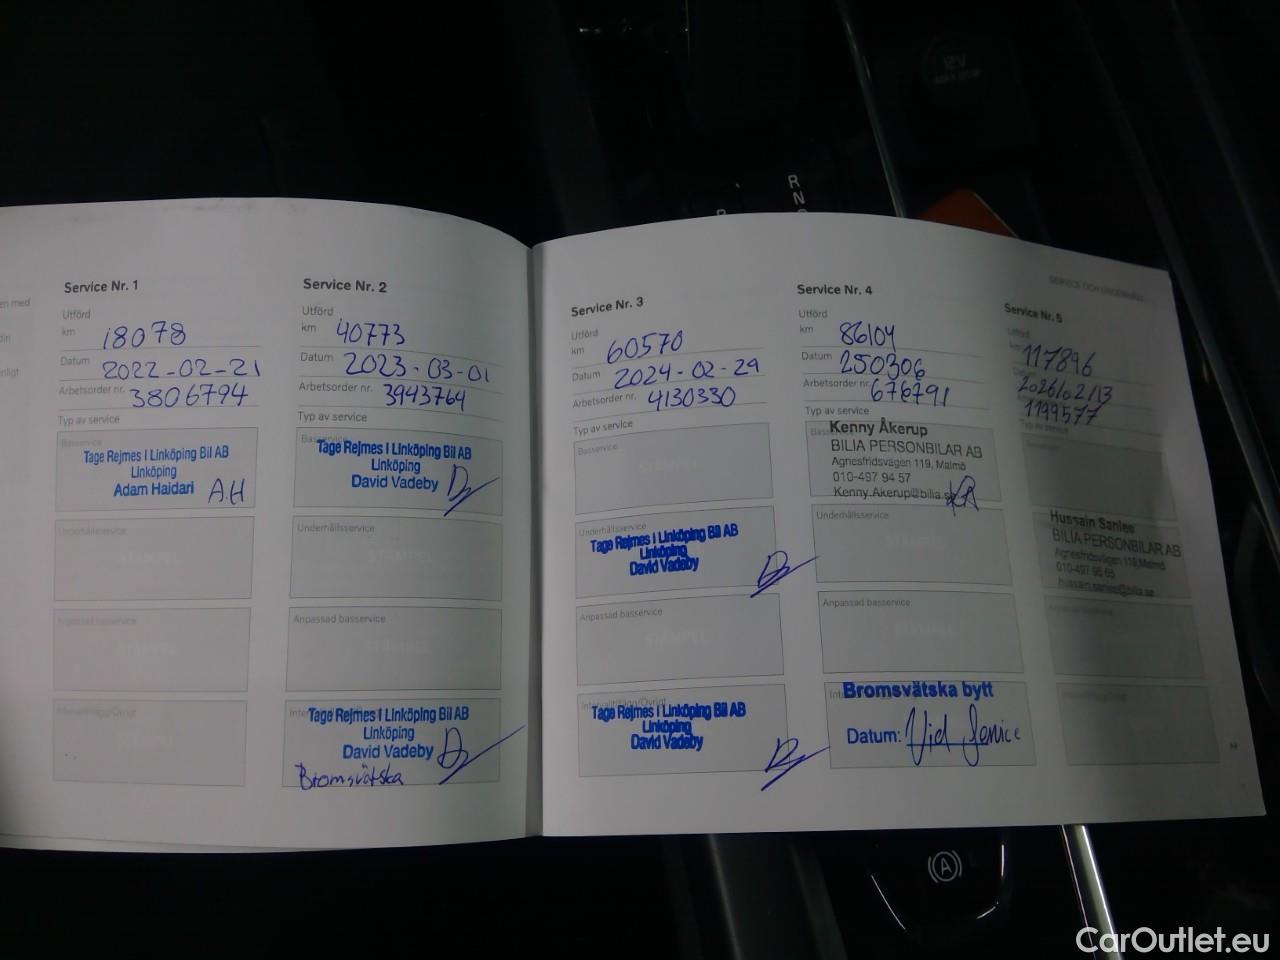 12V
R
N
en med
din
enligt
Service Nr. 1
Utförd
km 18078
Datum 2022-02-21
Arbetsorder nr. 3806794
Typ av service
Basservice
Tage Rejmes I Linköping Bil AB
Linköping
Adam Haidari A.H
Underhållsservice
Anpassad basservice
STÄMPEL
Intervalltillägg/Övrigt
Service Nr. 2
Utförd
km 40773
Datum 2023-03-01
Arbetsorder nr. 3943764
Typ av service
Tage Rejmes I Linköping Bil AB
Linköping
David Vadeby
Underhållsservice
Anpassad basservice
STÄMPEL
Tage Rejmes I Linköping Bil AB
Linköping
David Vadeby
Bromsvätska
Service Nr. 3
Utförd
km 60570
Datum 2024-02-29
Arbetsorder nr. 4130330
Typ av service
Basservice
STÄMPEL
Underhållsservice
Tage Rejmes I Linköping Bil AB
Linköping
David Vadeby
Anpassad basservice
STÄMPEL
Intervalltillägg/Övrigt
Tage Rejmes I Linköping Bil AB
Linköping
David Vadeby
Service Nr. 4
Utförd
km 86104
Datum 250306
Arbetsorder nr. 676791
Typ av service
Kenny Åkerup
BILIA PERSONBILAR AB
Agnesfridsvägen 119, Malmö
010-497 94 57
Kenny.Akerup@bilia.se
Underhållsservice
Anpassad basservice
STÄMPEL
Bromsvätska bytt
Datum: Vid Service
SERVICE OCH UNDERHÅLL
Service Nr. 5
Utförd
km 117896
2026/02/13
1199577
Typ av service
Hussain Sanlee
BILIA PERSONBILAR AB
Agnesfridsvägen 119, Malmö
010-497 95 65
hussain.sanlee@bilia.se
Anpassad basservice
Intervalltillägg/Övrigt
(A)
CarOutlet.eu